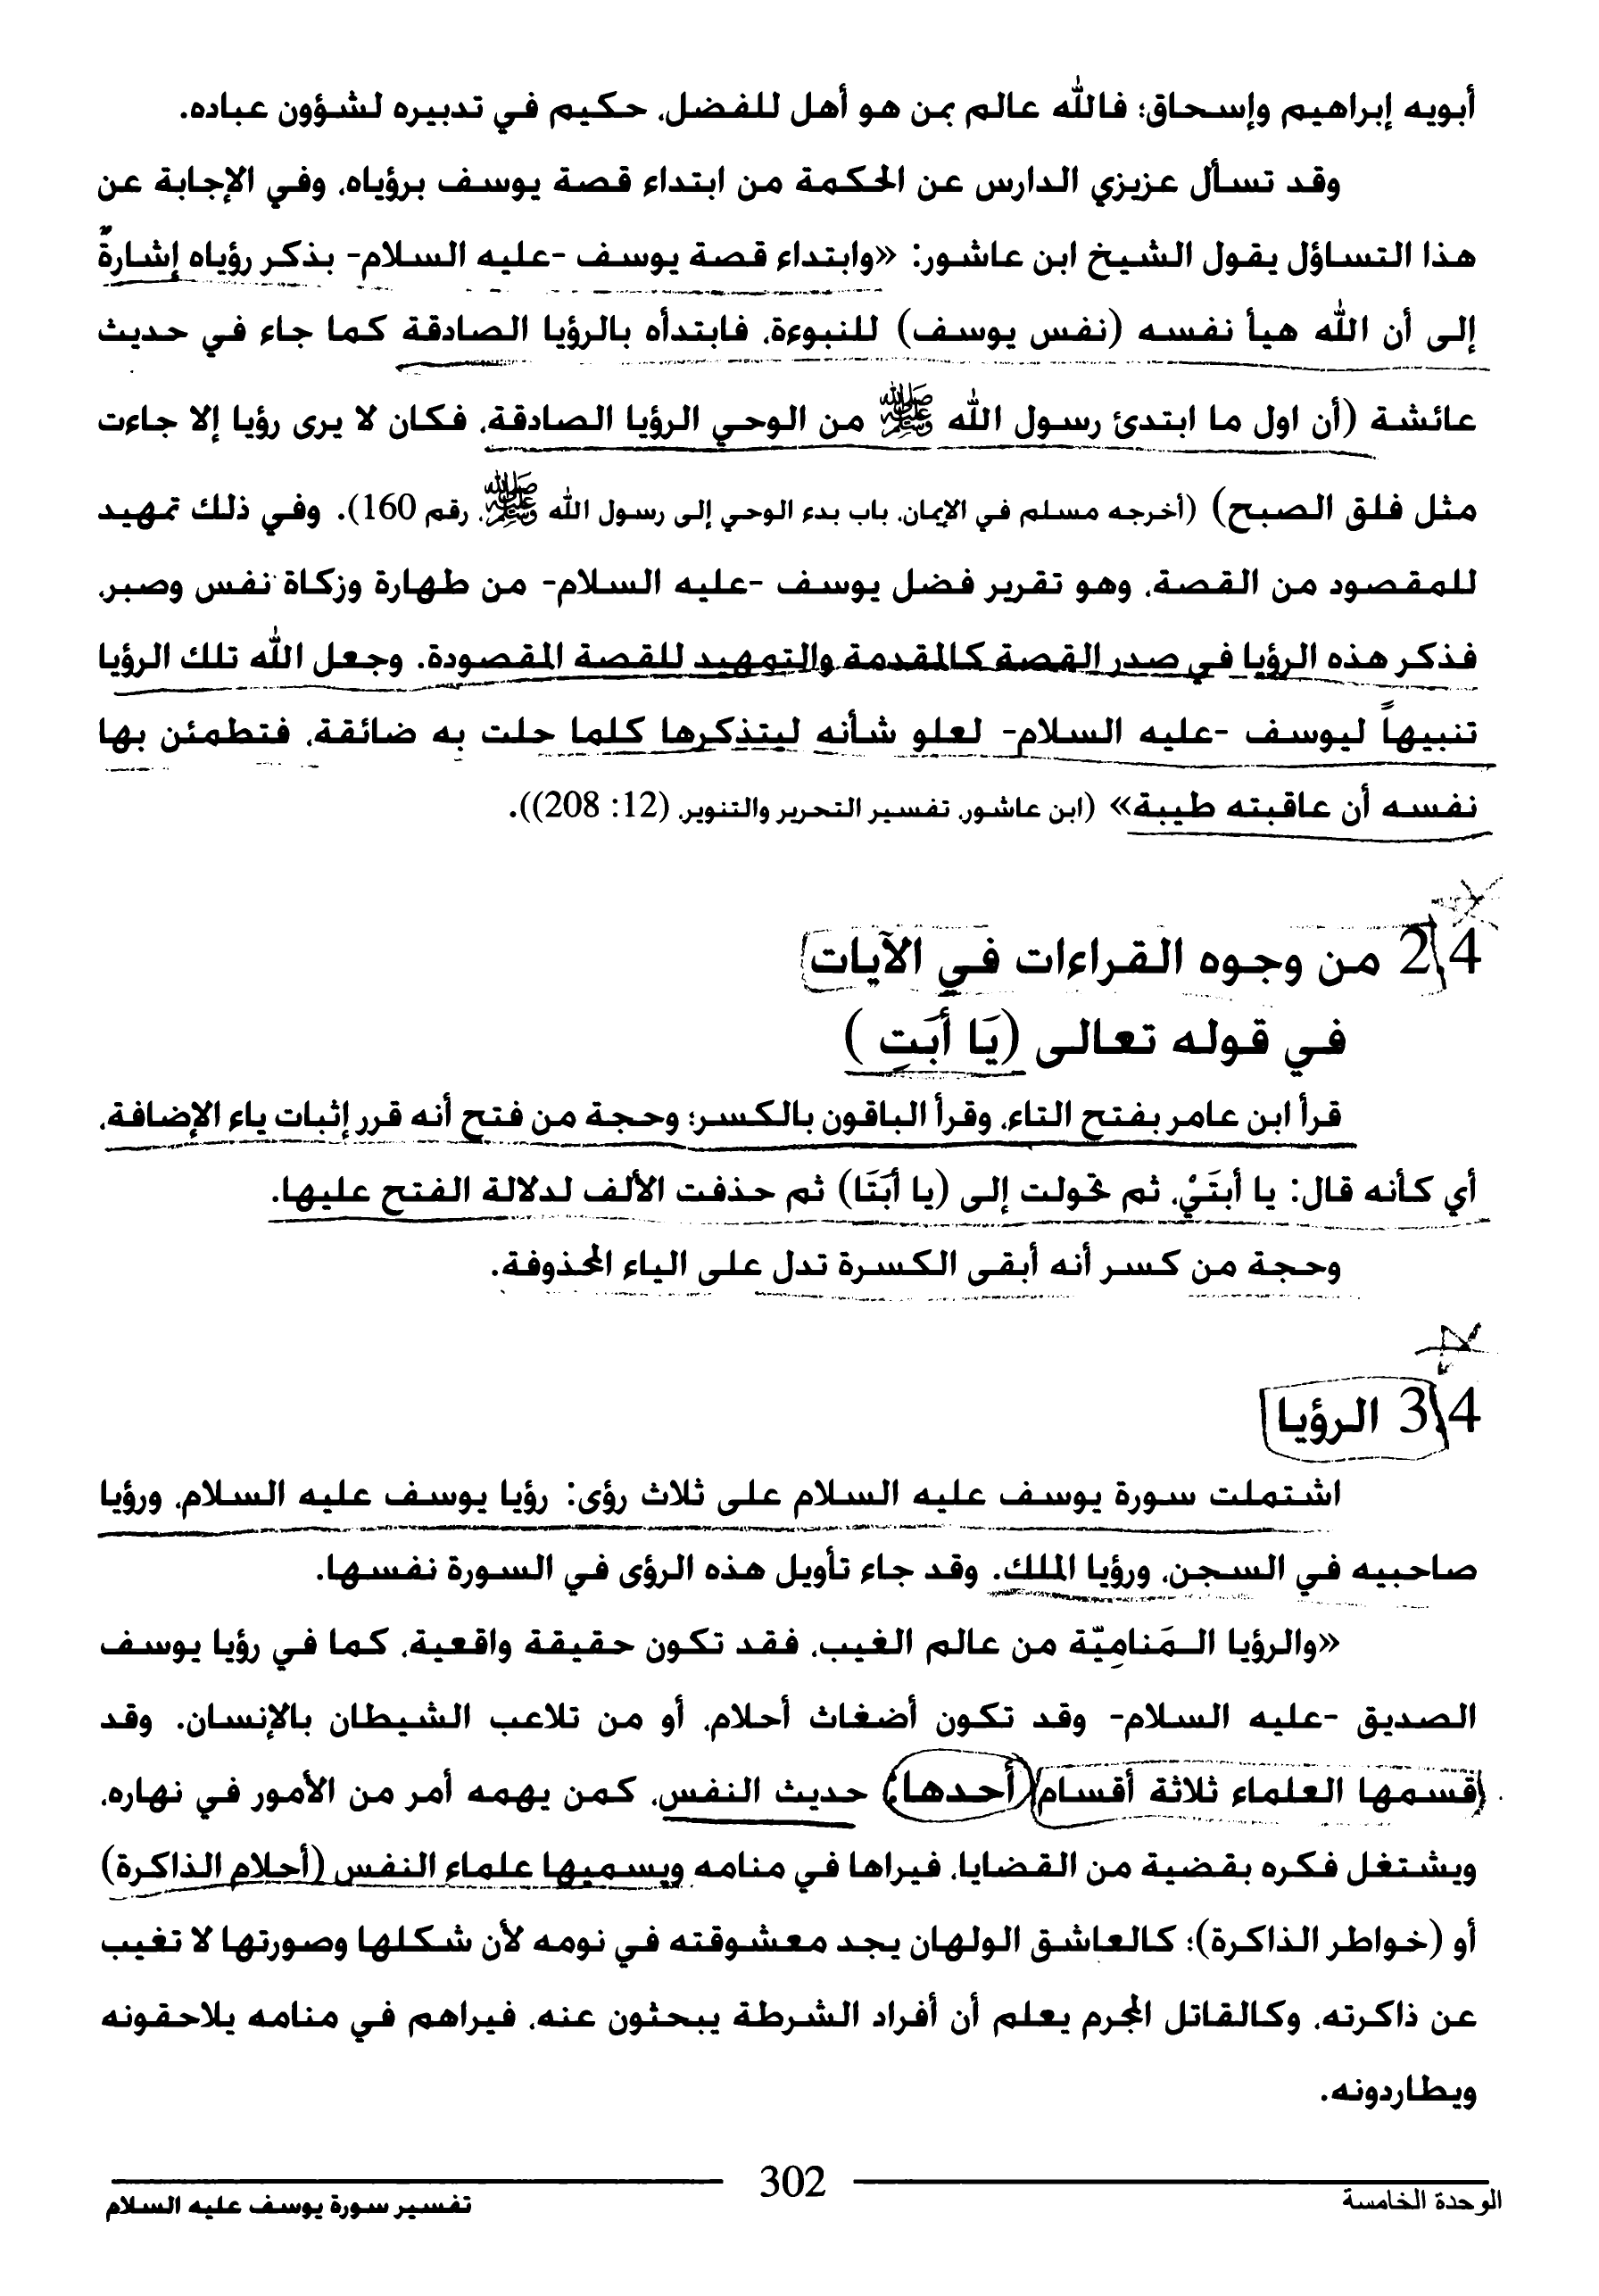 أبويه إبراهيم وإسحاق؛ فالله عالم بمن هو أهل للفضل، حكيم في تدبيره لشؤون عباده.
وقد تسأل عزيزي الدارس عن الحكمة من ابتداء قصة يوسف برؤياه، وفي الإجابة عن
هذا التساؤل يقول الشيخ ابن عاشور: «وابتداء قصة يوسف -عليه السلام- بذكر رؤياه إشارةٌ
إلى أن الله هيأ نفسه (نفس يوسف) للنبوءة، فابتدأه بالرؤيا الصادقة كما جاء في حديث
عائشة (أن اول ما ابتدئ رسول الله ﷺ من الوحي الرؤيا الصادقة، فكان لا يرى رؤيا إلا جاءت
مثل فلق الصبح) (أخرجه مسلم في الإيمان، باب بدء الوحي إلى رسول الله ﷺ، رقم 160). وفي ذلك تمهيد
للمقصود من القصة، وهو تقرير فضل يوسف -عليه السلام- من طهارة وزكاة نفس وصبر،
فذكر هذه الرؤيا في صدر القصة كالمقدمة والتمهيد للقصة المقصودة. وجعل الله تلك الرؤيا
تنبيهاً ليوسف -عليه السلام- لعلو شأنه ليتذكرها كلما حلت به ضائقة، فتطمئن بها
نفسه أن عاقبته طيبة» (ابن عاشور، تفسير التحرير والتنوير، (12: 208)).
4\2 من وجوه القراءات في الآيات
في قوله تعالى (يَا أَبَتِ )
قرأ ابن عامر بفتح التاء، وقرأ الباقون بالكسر؛ وحجة من فتح أنه قرر إثبات ياء الإضافة،
أي كأنه قال: يا أبتَيْ، ثم تحولت إلى (يا أبَتَا) ثم حذفت الألف لدلالة الفتح عليها.
وحجة من كسر أنه أبقى الكسرة تدل على الياء المحذوفة.
4\3 الرؤيا
اشتملت سورة يوسف عليه السلام على ثلاث رؤى: رؤيا يوسف عليه السلام، ورؤيا
صاحبيه في السجن، ورؤيا الملك. وقد جاء تأويل هذه الرؤى في السورة نفسها.
«والرؤيا الـمَنامِيّة من عالم الغيب، فقد تكون حقيقة واقعية، كما في رؤيا يوسف
الصديق -عليه السلام- وقد تكون أضغاث أحلام، أو من تلاعب الشيطان بالإنسان. وقد
قسمها العلماء ثلاثة أقسام (أحدها): حديث النفس، كمن يهمه أمر من الأمور في نهاره،
ويشتغل فكره بقضية من القضايا، فيراها في منامه ويسميها علماء النفس (أحلام الذاكرة)
أو (خواطر الذاكرة)؛ كالعاشق الولهان يجد معشوقته في نومه لأن شكلها وصورتها لا تغيب
عن ذاكرته، وكالقاتل المجرم يعلم أن أفراد الشرطة يبحثون عنه، فيراهم في منامه يلاحقونه
ويطاردونه.
الوحدة الخامسة 302 تفسير سورة يوسف عليه السلام